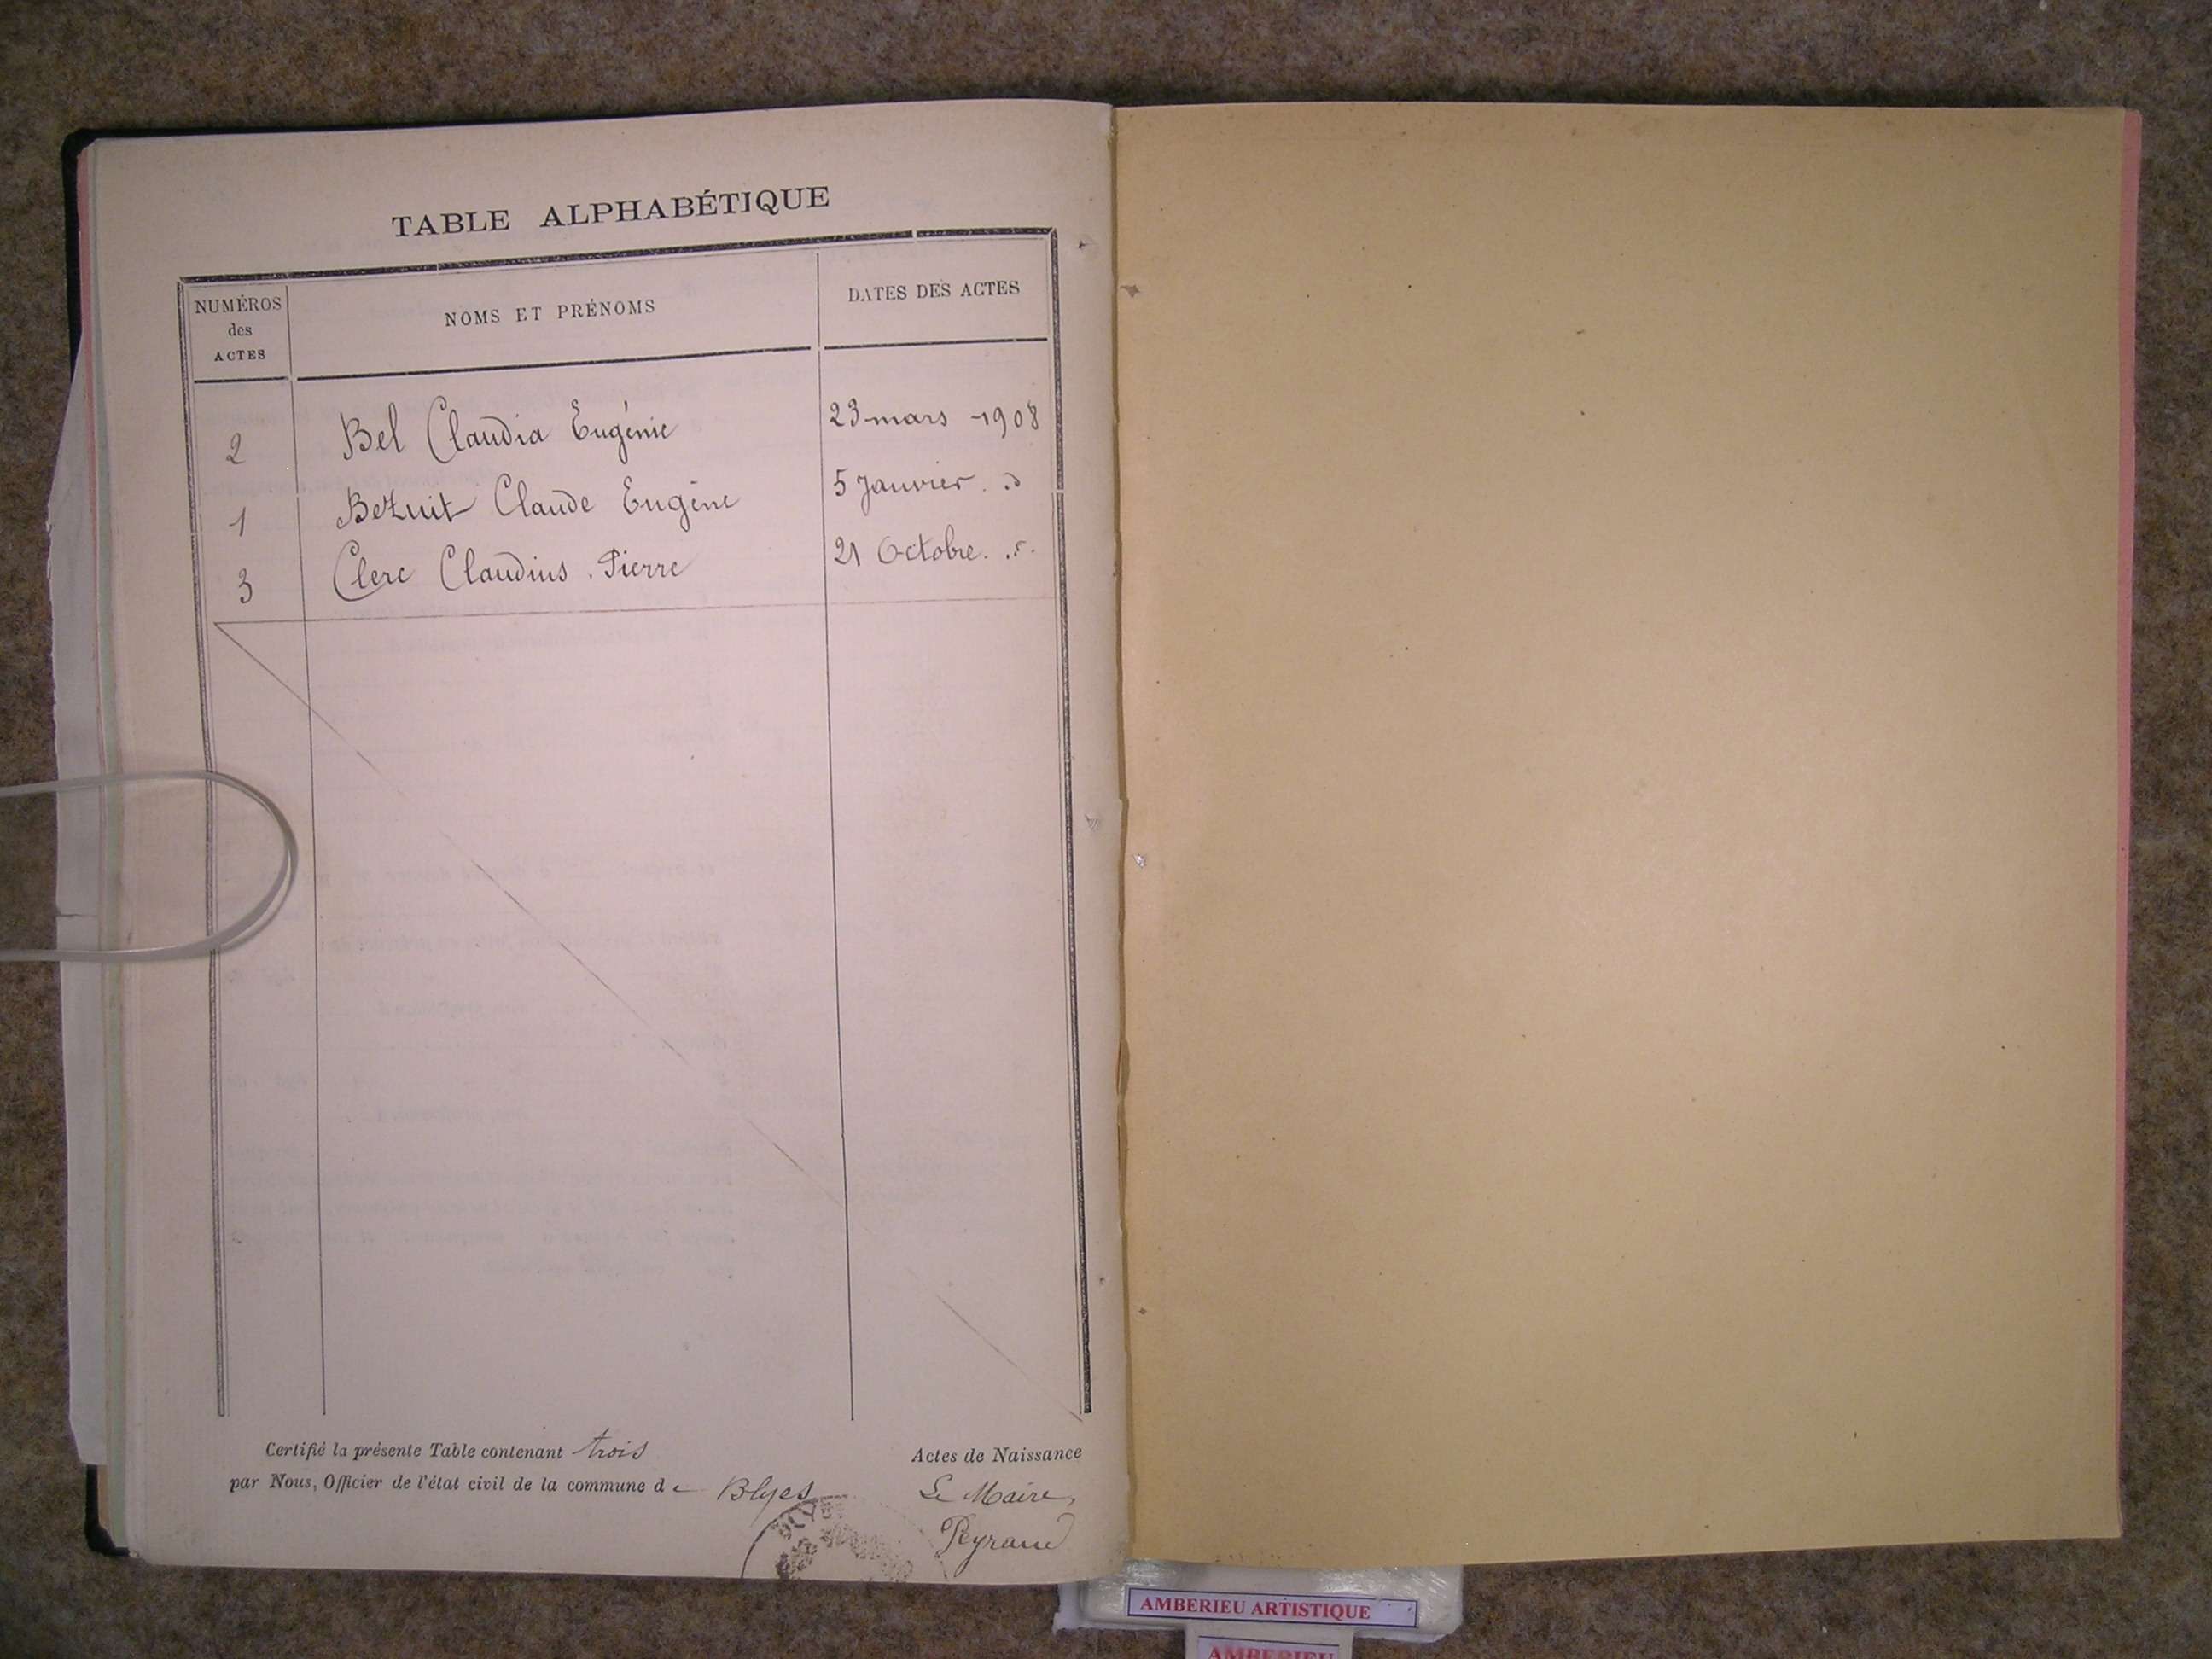 TABLE ALPHABÉTIQUE
NUMÉROS
des
ACTES
NOMS ET PRÉNOMS
DATES DES ACTES
2 Bel Claudia Eugénie 23 mars 1908
1 Bezuit Claude Eugène 5 Janvier. d
3 Clerc Claudius Pierre 21 Octobre.
Certifié la présente Table contenant trois Actes de Naissance
par Nous, Officier de l'état civil de la commune de Blyes
Le Maire,
Peyraud
AMBERIEU ARTISTIQUE
AMBERIEU